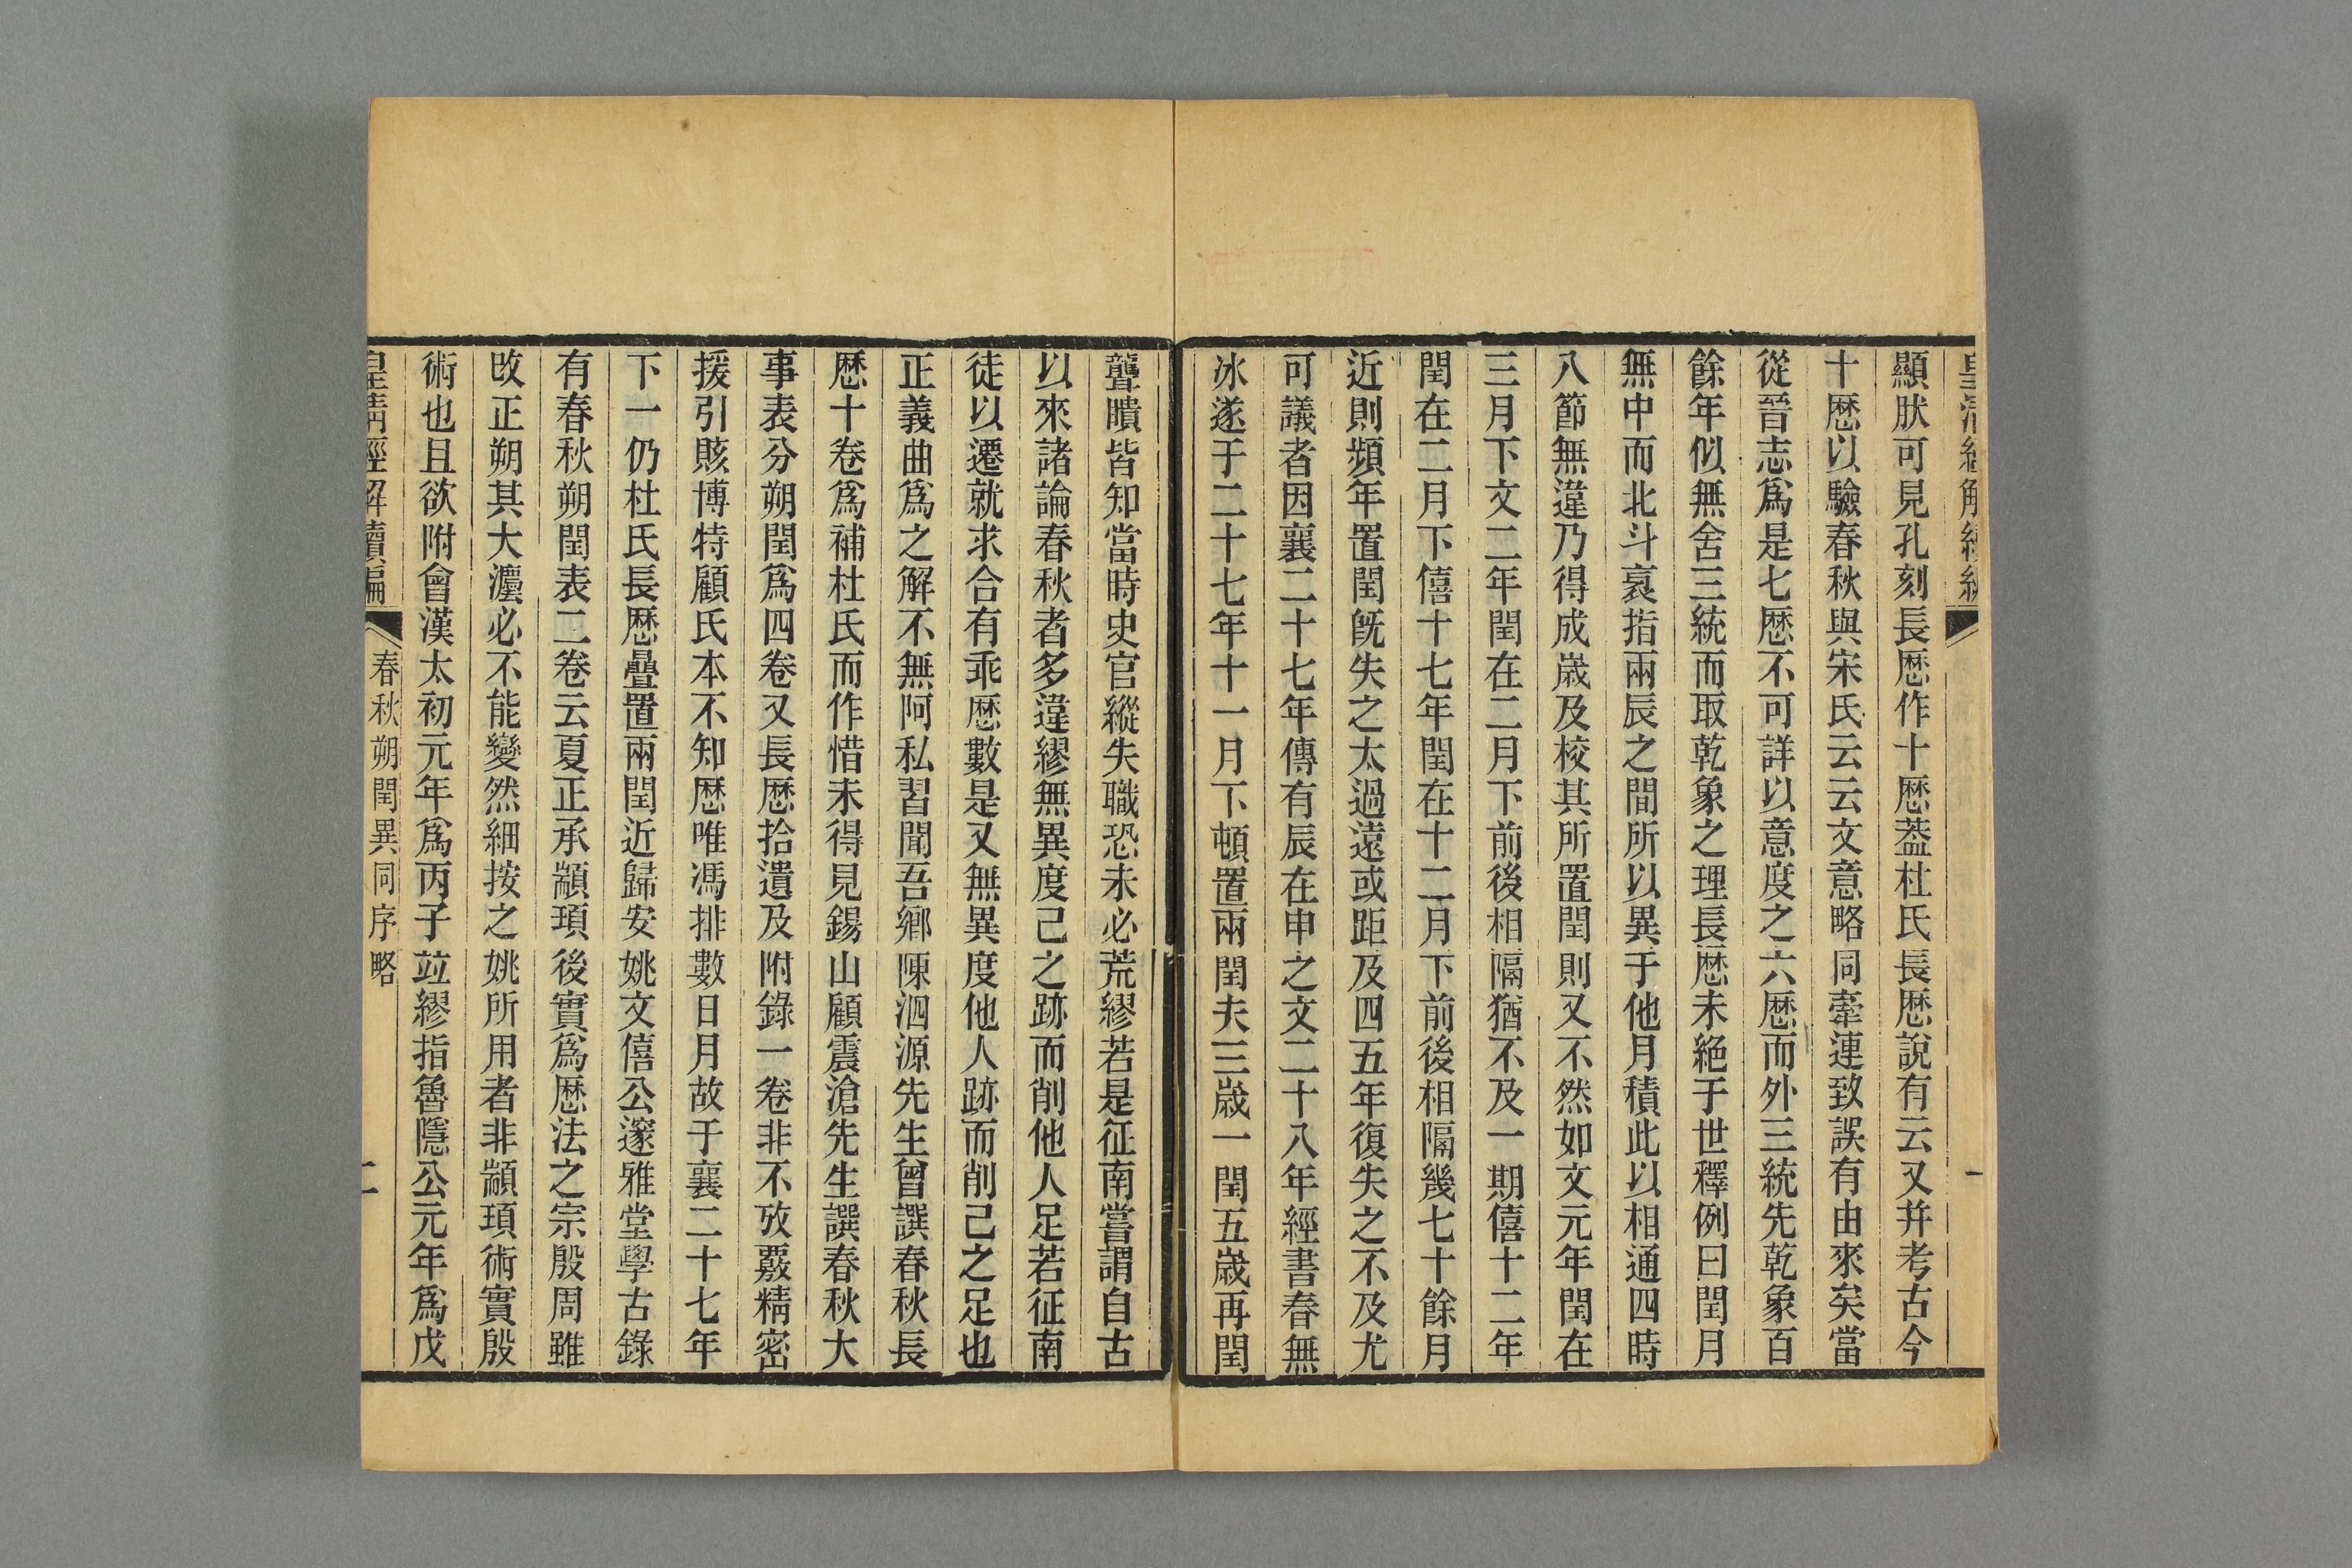 皇清經解續編
一
顯肰可見孔刻長厯作十厯葢杜氏長厯說有云又幷考古今
十厯以驗春秋與宋氏云云文意略同牽連致誤有由來矣當
從晉志爲是七厯不可詳以意度之六厯而外三統先乾象百
餘年似無舍三統而取乾象之理長厯未絶于世釋例曰閏月
無中而北斗衺指兩辰之間所以異于他月積此以相通四時
八節無違乃得成嵗及校其所置閏則又不然如文元年閏在
三月下文二年閏在二月下前後相隔猶不及一期僖十二年
閏在二月下僖十七年閏在十二月下前後相隔幾七十餘月
近則頻年置閏旣失之太過遠或距及四五年復失之不及尤
可議者因襄二十七年傳有辰在申之文二十八年經書春無
冰遂于二十七年十一月下頓置兩閏夫三嵗一閏五嵗再閏
聾聵皆知當時史官縱失職恐未必荒繆若是征南嘗謂自古
以來諸論春秋者多違繆無異度己之跡而削他人足若征南
徒以遷就求合有乖厯數是又無異度他人跡而削己之足也
正義曲爲之解不無阿私習聞吾鄉陳泗源先生曾譔春秋長
厯十卷爲補杜氏而作惜未得見錫山顧震滄先生譔春秋大
事表分朔閏爲四卷又長厯拾遺及附錄一卷非不攷覈精密
援引賅博特顧氏本不知厯唯馮排數日月故于襄二十七年
下一仍杜氏長厯疊置兩閏近歸安姚文僖公邃雅堂學古錄
有春秋朔閏表二卷云夏正承顓頊後實爲厯法之宗殷周雖
改正朔其大灋必不能變然細按之姚所用者非顓頊術實殷
術也且欲附會漢太初元年爲丙子竝繆指魯隱公元年爲戊
皇清經解續編
春秋朔閏異同序略
二